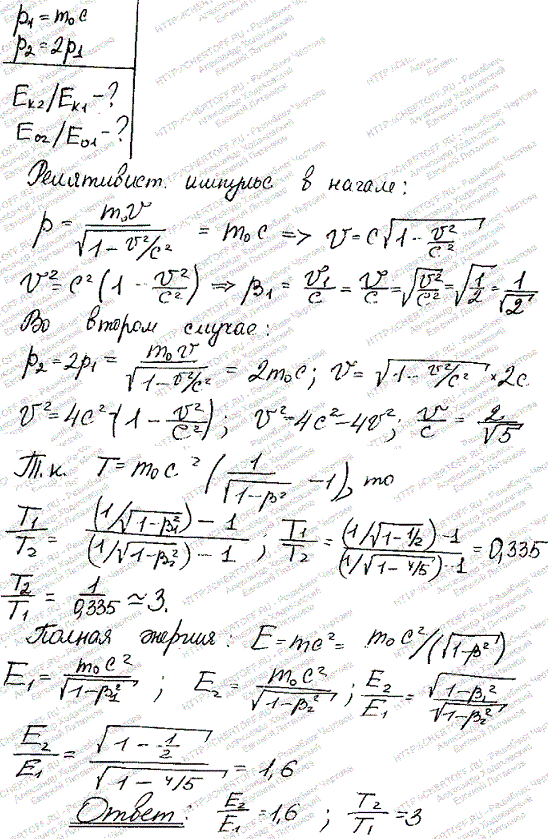 p₁ = m₀c
p₂ = 2p₁
Eк₂/Eк₁ - ?
E₀₂/E₀₁ - ?
Релятивист. импульс в начале:
p = m₀v/√(1 - v²/c²) = m₀c => v = c√(1 - v²/c²)
v² = c²(1 - v²/c²) => β₁ = v₁/c = v/c = √(v²/c²) = √(1/2) = 1/√2
Во втором случае:
p₂ = 2p₁ = m₀v/√(1 - v²/c²) = 2m₀c; v = √(1 - v²/c²) * 2c
v² = 4c²·(1 - v²/c²); v² = 4c² - 4v²; v/c = 2/√5
Т.к. T = m₀c²(1/√(1-β²) - 1), то
T₁/T₂ = ((1/√(1-β₁²)) - 1)/((1/√(1-β₂²)) - 1); T₁/T₂ = ((1/√(1-1/2)) - 1)/((1/√(1-4/5)) - 1) = 0,335
T₂/T₁ = 1/0,335 ≈ 3.
Полная энергия: E = mc² = m₀c²/(√(1-β²))
E₁ = m₀c²/√(1-β₁²); E₂ = m₀c²/√(1-β₂²); E₂/E₁ = √(1-β₁²)/√(1-β₂²)
E₂/E₁ = √(1 - 1/2)/√(1 - 4/5) = 1,6
Ответ: E₂/E₁ = 1,6; T₂/T₁ = 3
HTTP://CHERTOFF.RU - Решебник Чертова
Александр Ходановский
Евгений Литвинов